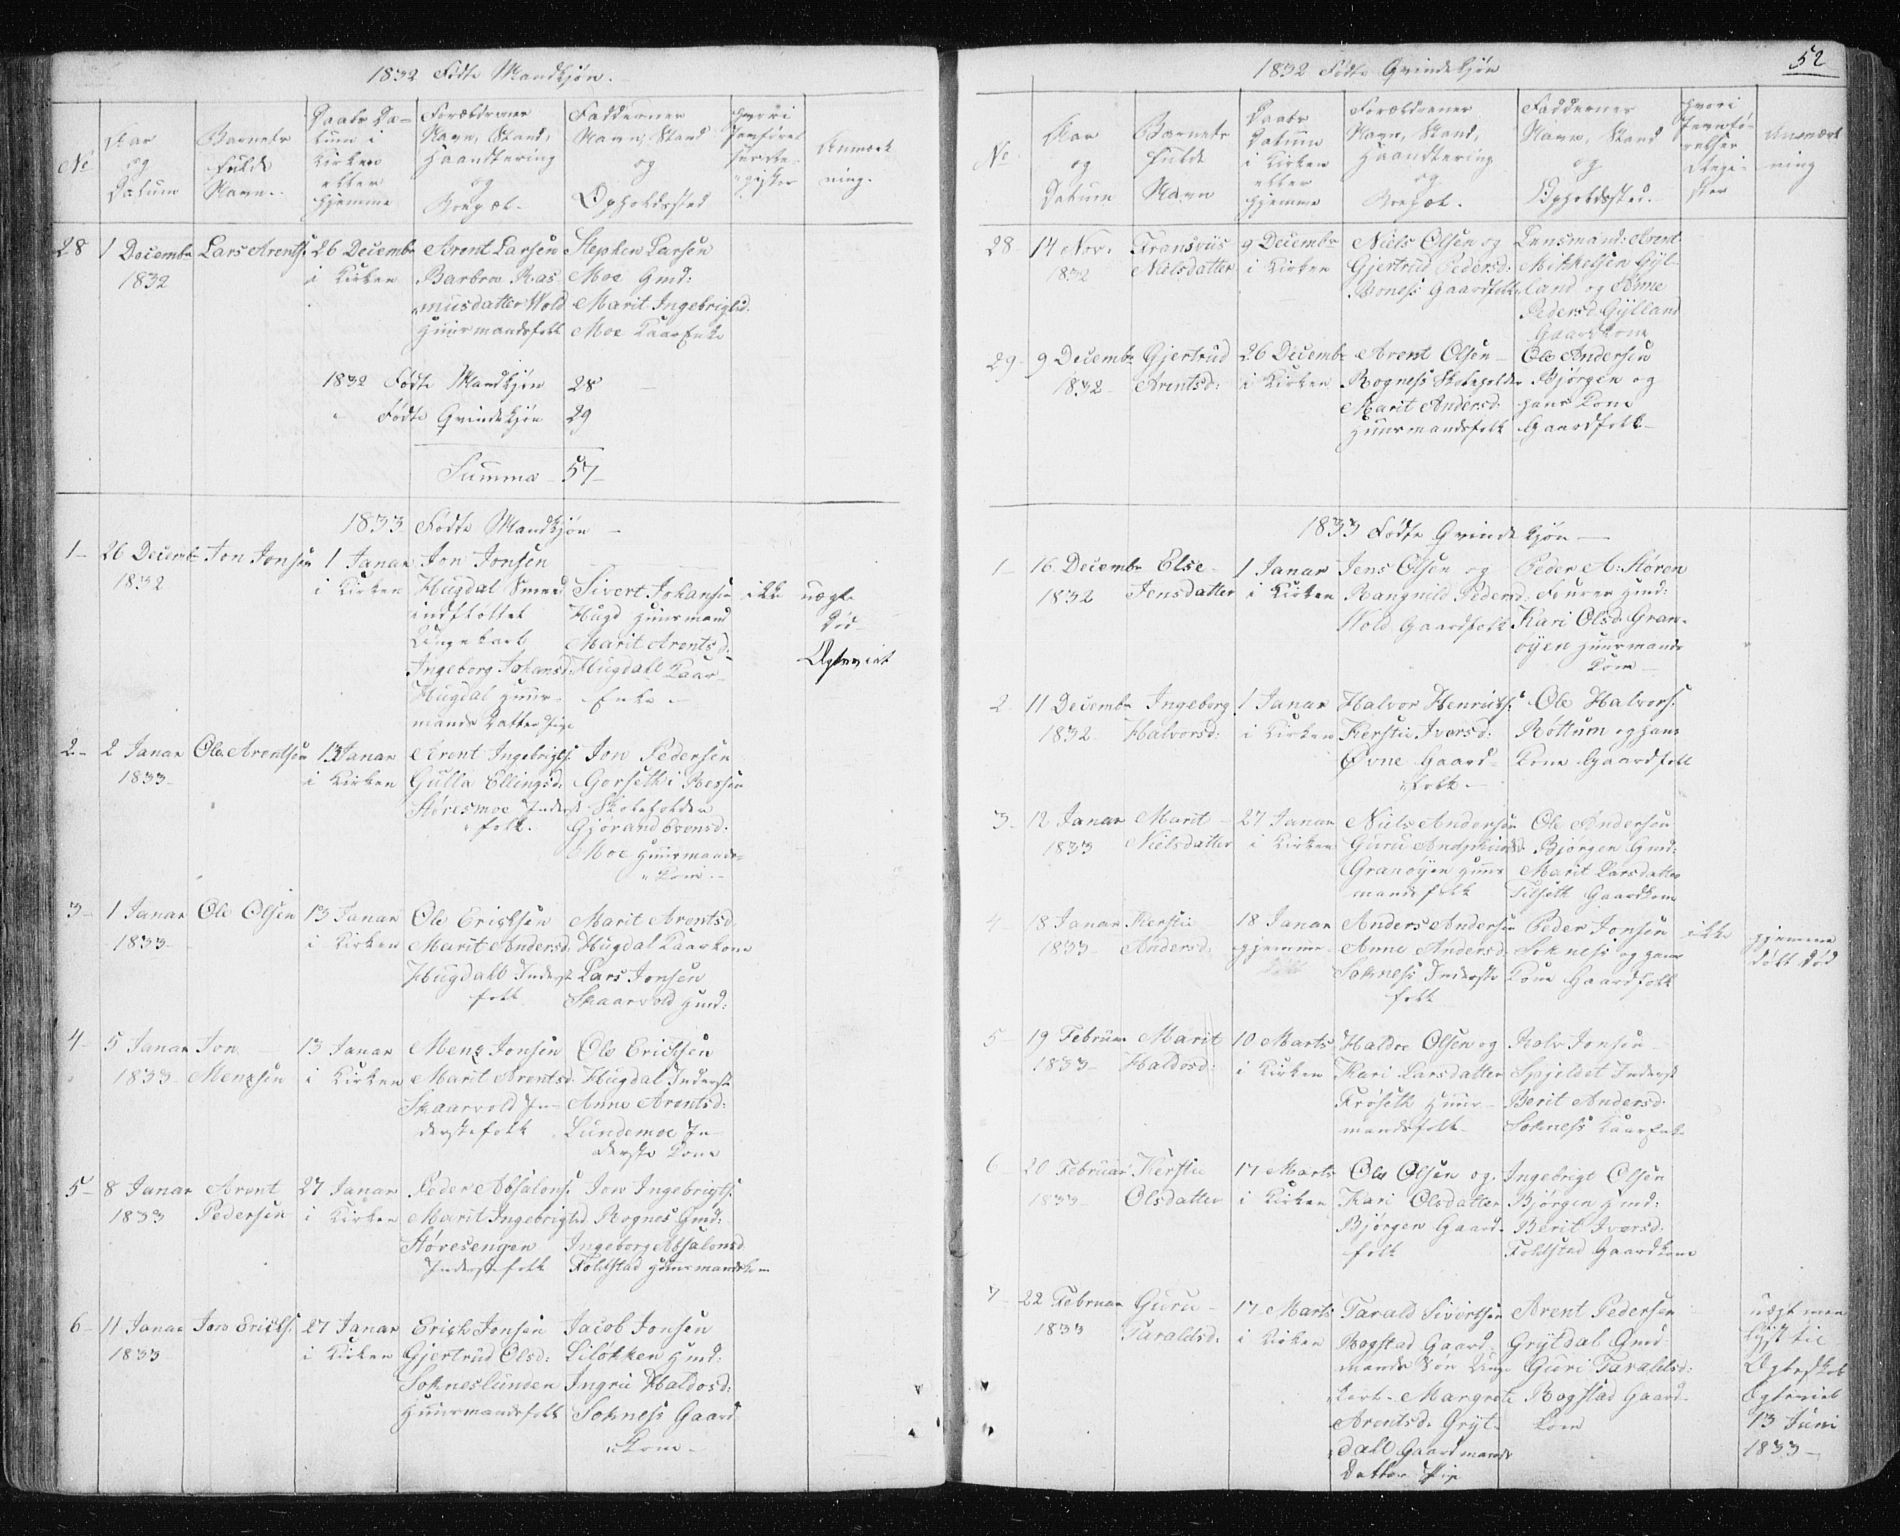 1832 Fødte Mandkjøn.
No
Aar
og
Datum
Barnets
fulde
Navn.
Daabs Da-
tum i
Kirken
eller
hjemme
Forældrenes
Navn, Stand,
Haandtering
og
Boepæl.
Faddernes
Navn, Stand
og
Opholdssted
Anmærk
ning.
28
1 Decembr
1832
Lars Arents.
26 Decembr
i Kirken
Arent Larsen
Barbro Ras
musdatter Wold
Huusmandsfolk
Stephen Larsen
Moe Gmd:
Marit Ingebrigtsd:
Moe Kaarenke
1832 Fødte Mandkjøn 28
Fødte Qvindekjøn 29
Summa 57
1833 Fødte Mandkjøn
1
26 Decembr
1832
Jon Jonsen
1 Januar
i Kirken
Jon Jonsen
Hugdal Smed
indflottet
Ungekarl
Ingeborg Johansd:
Hugdal Huus-
mands Datter Pige
Sivert Johansen
Hugd Huusmand
Marit Arentsd:
Hugdall Kaar
Enke
ikke
uægte
Død
2
2 Januar
1833
Ole Arentsen
13 Januar
i Kirken
Arent Ingebrigts.
Gulla Ellingsd:
Støresmoe Inderst
folk.
Jon Pedersen
Gorseth i Ressen
Skoleholder
Gjørand Evensd:
Moe Huusmands-
Kone
3
1 Januar
1833
Ole Olsen
13 Januar
i Kirken
Ole Ericksen
Marit Andersd:
Hugdall Inderst
folk
Marit Arentsd.
Hugdal Kaarkone
Lars Jonsen
Skaarvold Gmd:
4
5 Januar
1833
Jon
Mentzen
13 Januar
i Kirken
Mentz Jonsen
Marit Arentsd.
Skaarvold In-
derstefolk
Ole Ericksen
Hugdal Inderst
Anne Arentsd:
Lundemoe In-
derste Kone
5
8 Januar
1833
Arent
Pedersen
27 Januar
i Kirken
Peder Absalons.
Marit Ingebrigtsd
Støresengen
Inderstefolk
Jon Ingebrigts.
Rognes Gmd:
Ingeborg Absalonsd
Foldstad Huusmandskone
6
11 Januar
1833
Jon Ericks.
27 Januar
i Kirken
Erich Jonsen
Gjertrud Olsd:
Sokneslunden
Huusmandsfolk
Jacob Jonsen
Liløkken Gmd:
Ingrie Haldosd:
Sokness Gaard
Kone
52
1832 Fødte Qvindekjøn
No
Aar
og
Datum
Barnets
fulde
Navn
Daabs
Datum
i Kirken
eller
hjemme
Forældrenes
Navn, Stand,
Haandtering
og
Boepæl.
Faddernes
Navn, Stand
og
Opholdssted.
Anmærk
ning
28
14 Nov.
1832
Nielsdatter
9 Decembr
i Kirken
Niels Olsen og
Gjertrud Pedersd:
Bones Gaardfolk
Lensmand: Arent
Mikkelsen Gyl-
land og Anne
Pedersd. Gylland
Gaardkone
29
9 Decembr
1832
Gjertrud
Arentsd:
26 Decembr
i Kirken
Arent Olsen
Rogness Skoleholder
Marit Andersd:
Huusmandsfolk
Ole Andersen
Bjørgen og
hans Kone
Gaardfolk
1833 Fødte Qvindekjøn
1
16 Decembr
1832
Else
Jensdatter
1 Januar
i Kirken
Jens Olsen og
Rangnild Pedersd
Wold Gaardfolk
Peder A: Støren
Fourer Gmd:
Kari Olsd. Gran-
øyen Huusmands
Kone
2
11 Decembr
1832
Ingeborg
Halvorsd:
1 Januar
i Kirken
Halvor Henricks.
Kerstie Iversd:
Øvne Gaard-
folk
Ole Halvors.
Røttum og hans
Kone Gaardfolk
3
12 Januar
1833
Marit
Nielsdatter
27 Januar
i Kirken
Niels Andersen
Granøyen Huus
mandsfolk
Ole Andersen
Bjørgen Gmd:
Marit Larsdatter
Tilseth Gaardkone
4
18 Januar
1833
Kerstie
Andersd.
18 Januar
hjemme
Anders Andersen
Anne Andersd.
Sokness Inderste
folk
Peder Jonsen
Soknes og hans
Kone Gaardfolk
ikke
hjemme
døbt Død
5
19 Februar
1833
Marit
Haldosd:
10 Marts
i Kirken
Haldor Olsen og
Kari Larsdatter
Frøseth Huus
mandsfolk
Rolv Jonsen
Spjeldet Inderst
Berit Andersd.
Sokness Kaarenke
6
20 Februar
1833
Kerstie
Olsdatter
17 Marts
i Kirken
Ole Olsen og
Kari Olsdatter
Bjørgen Gaard
folk
Ingebrigt Olsen
Bjørgen Gmd:
Berit Iversd:
Foldstad Gaardkone
7
22 Februar
1833
Guru
Taraldsd.
17 Marts
i Kirken
Tarald Sivertsen
Rogstad Gaard
mands Søn Unge
karl. Margrete
Arentsd. Gryt-
dall Gaardmands
Datter Pige
Arent Pedersen
Grytdal Gmd
Guri Taraldsd:
Rogstad Gaard
Kone
uægt men
lyst til
Ægteskab
13 Juni
1833